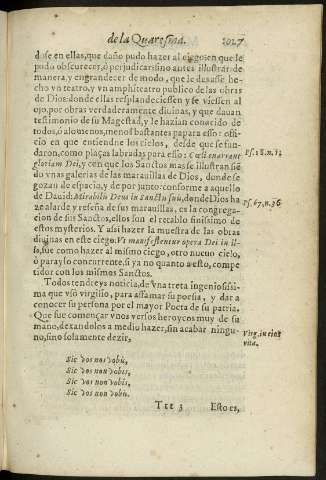 de la Quaresma. 1027
dose en ellas, que daño pudo hazer al ciego en que le
pudo obscurecer, ò perjudicar sino antes illustrar de
manera, y engrandecer de modo, que le desasse he-
cho vn teatro, y vn amphiteatro publico de las obras
de Dios: donde ellas resplandeciessen y se viessen al
ojo, por obras verdaderamente diuinas, y que dauan
testimonio de su Magestad, y le hazian conocido de
todos, ò alomenos, menos bastantes papara esso: offi-
cio en que entiendne los cielos, desde que se fun-
daron, como plaças labradas para esso: Cœli enarrant
gloriam Dei, y con que los Sanctos mas se illustran siẽ
do vnas galerias de las marauillas de Dios, donde se
gozan de espacio, y de por junto: conforme a aquello
de Dauid: Mirabilis Deus in sanctis suis, donde Dios ha
ze alarde y reseña de sus marauillas, es la congrega-
cion de sus Sanctos, ellos son el retablo finissimo de
estos mysterios. Y assi hazer la muestra de las obras
diuinas en este ciego: Vt manifestentur opera Dei in il-
lo, fue como hazer al mismo ciego, otro nueuo cielo,
ò parayso concurrente, si ya no quanto a esto, compe
tidor con los mismos Sanctos.
Todos tendreys noticia, de vna treta ingeniosissi-
ma que vsò virgilio, para affamar su poesia, y dar a
conocer su persona por el mayor Poeta de su patria.
Que fue començar vnos versos heroycos muy de su
mano, dexandolos a medio hazer, sin acabar ningu-
no, sino solamente dezir,
Sic vos non vobis,
Sic vos non vobis,
Sic vos non vobis,
Sic vos non vobis.
Ttt 3 Esto es,
Ps. 18. n. 1
Ps. 67. n. 36
Virg. in eius
vita.